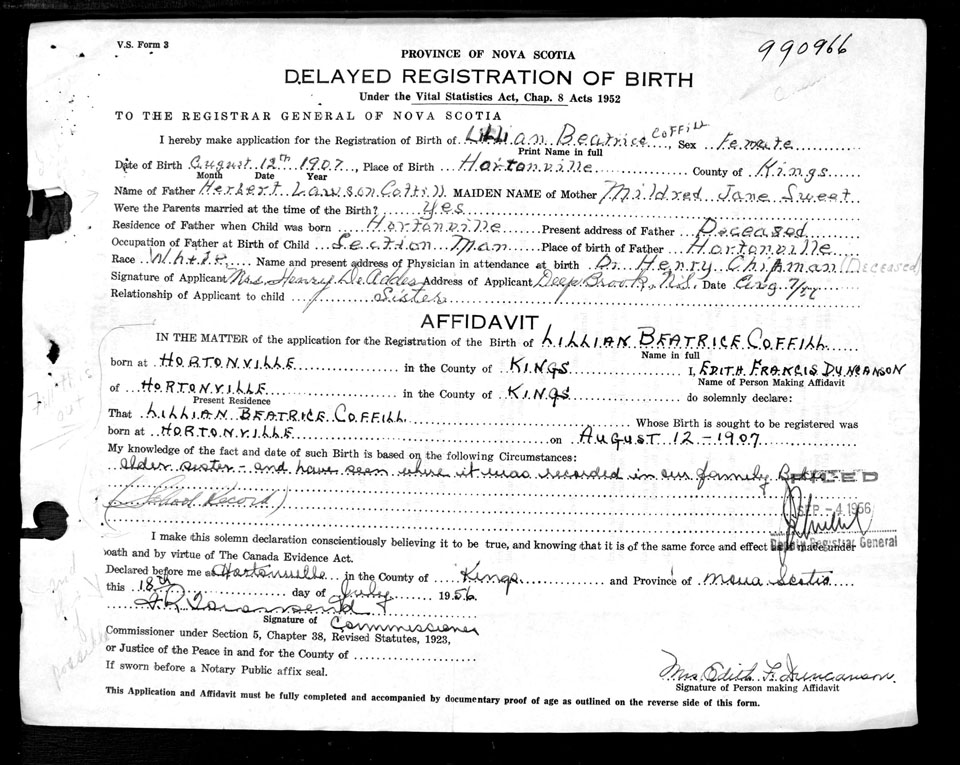 V.S. Form 3
990966
PROVINCE OF NOVA SCOTIA
DELAYED REGISTRATION OF BIRTH
Under the Vital Statistics Act, Chap. 8 Acts 1952
TO THE REGISTRAR GENERAL OF NOVA SCOTIA
I hereby make application for the Registration of Birth of Lillian Beatrice Coffill, Sex Female
Print Name in full
Date of Birth August 12th 1907, Place of Birth Hortonville County of Kings
Month Date Year
Name of Father Herbert Lawson Coffill MAIDEN NAME of Mother Mildred Jane Sweet
Were the Parents married at the time of the Birth? Yes
Residence of Father when Child was born Hortonville Present address of Father Deceased
Occupation of Father at Birth of Child Section Man Place of birth of Father Hortonville
Race White Name and present address of Physician in attendance at birth Dr Henry Chipman (Deceased)
Signature of Applicant Mrs Henry DeAdder Address of Applicant Deep Brook, N.S. Date Aug 7/
Relationship of Applicant to child Sister
AFFIDAVIT
IN THE MATTER of the application for the Registration of the Birth of LILLIAN BEATRICE COFFILL
Name in full
born at HORTONVILLE in the County of KINGS I, EDITH FRANCIS DUNCANSON
Name of Person Making Affidavit
of HORTONVILLE in the County of KINGS do solemnly declare:
Present Residence
That LILLIAN BEATRICE COFFILL Whose Birth is sought to be registered was
born at HORTONVILLE on AUGUST 12 - 1907
My knowledge of the fact and date of such Birth is based on the following Circumstances:
older sister - and have seen where it was recorded in our family
(School Record)
SEP - 4 1956
Deputy Registrar General
I make this solemn declaration conscientiously believing it to be true, and knowing that it is of the same force and effect as if made under
oath and by virtue of The Canada Evidence Act.
Declared before me at Hortonville in the County of Kings and Province of Nova Scotia
this 18th day of July 1956
Townsend
Signature of Commissioner
Commissioner under Section 5, Chapter 38, Revised Statutes, 1923,
or Justice of the Peace in and for the County of
If sworn before a Notary Public affix seal.
Mrs Edith F. Duncanson
Signature of Person making Affidavit
This Application and Affidavit must be fully completed and accompanied by documentary proof of age as outlined on the reverse side of this form.